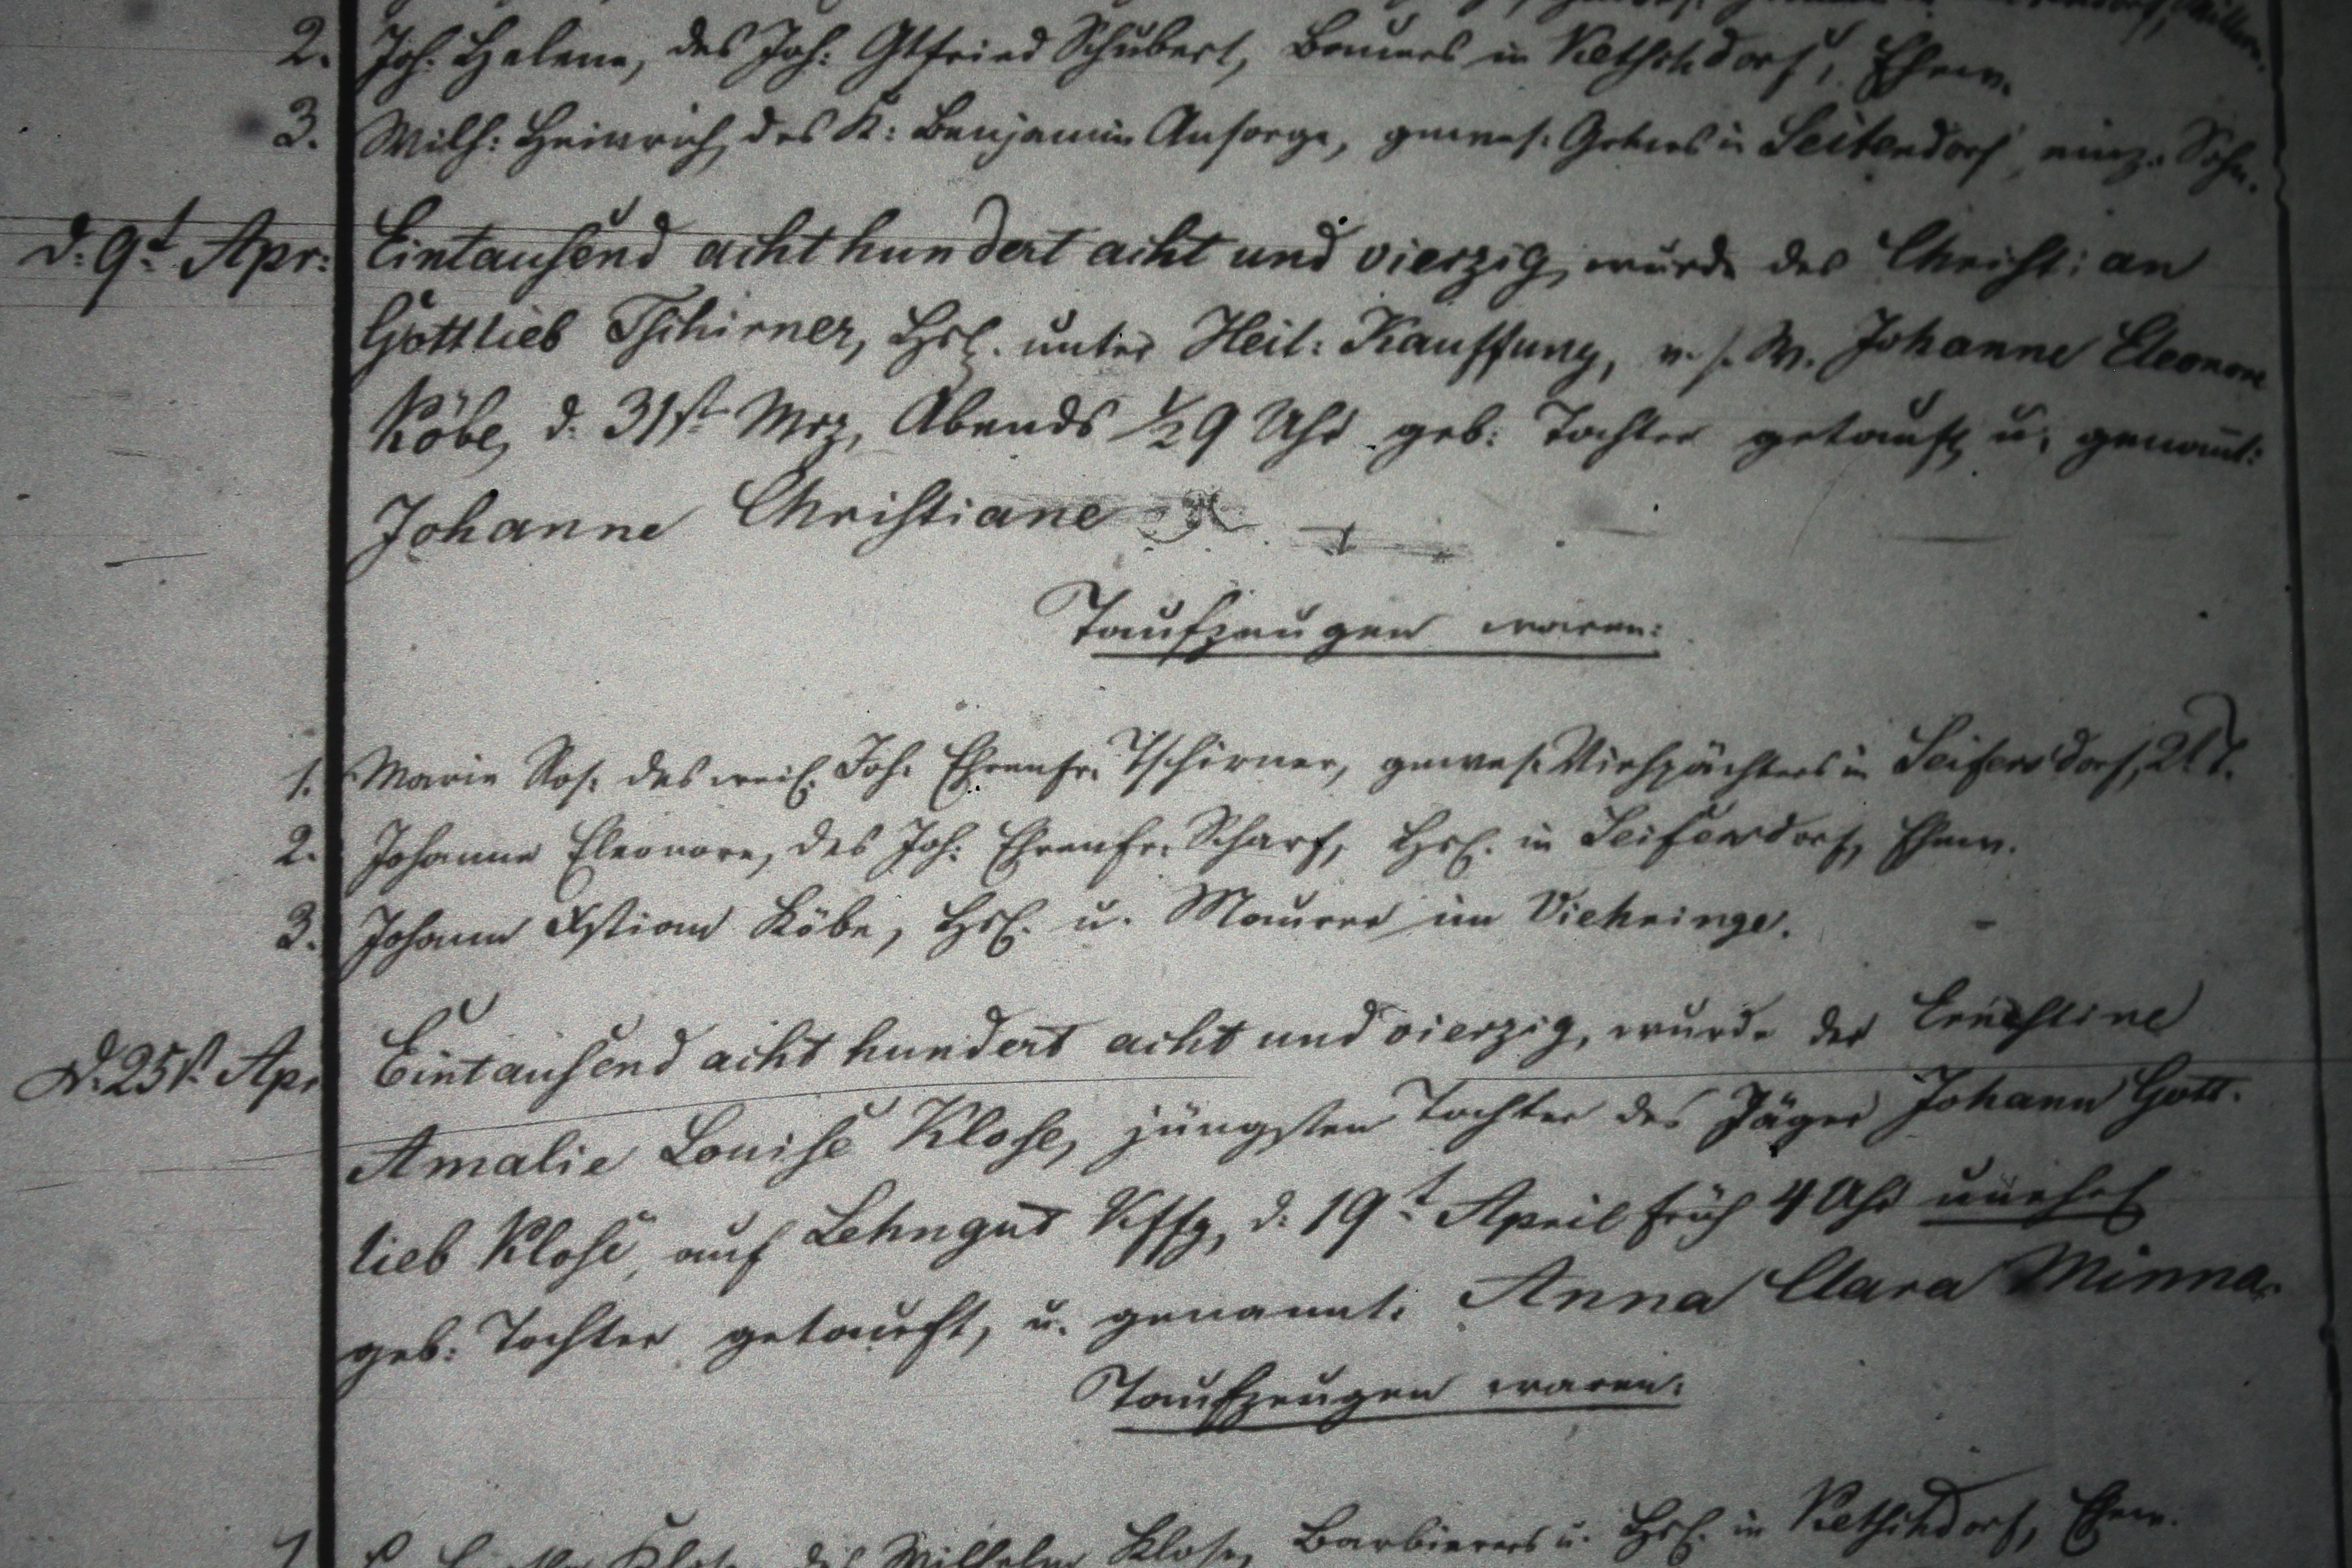 2. Joh: Helena, des Joh: Gtfried Schubert, Bauers in Ketschdorf, Ehew.
3. Wilh: Heinrich, des K: Benjamin Ansorge, gewes: in Seitendorf, einz: Sohn.
d: 9t. Apr: Eintausend acht hundert acht und vierzig, wurde des Christian
Gottlieb Tschirner, Hsl. unter Heil: Kauffung, v. s. W. Johanne Eleonore
Köbe, d: 31st Mrz, Abends ½9 Uhr geb: Tochter getauft, u. genannt:
Johanne Christiane
Taufzeugen waren:
1. Marie Ros: des weil. Joh: Ehrenfr. Tschirner, gewes: Viehpächters in Seifersdorf, 2t. T.
2. Johanne Eleonore, des Joh: Ehrenfr. Scharf, Hsl. in Seifersdorf, Ehew.
3. Johann Xstian Köbe, Hsl. u. Maurer im Viehringe.
D. 25t. Apr Eintausend acht hundert acht und vierzig, wurde der Ernestine
Amalie Louise Klose, jüngsten Tochter des Jäger Johann Gott-
lieb Klose, auf Lehngut Kffg, d: 19t. April früh 4 Uhr unehel
geb: Tochter getauft, u. genannt: Anna Clara Minna.
Taufzeugen waren:
1. Klose, des Wilhelm Klose, Barbierers u. Hsl. in Ketschdorf, Ehew.